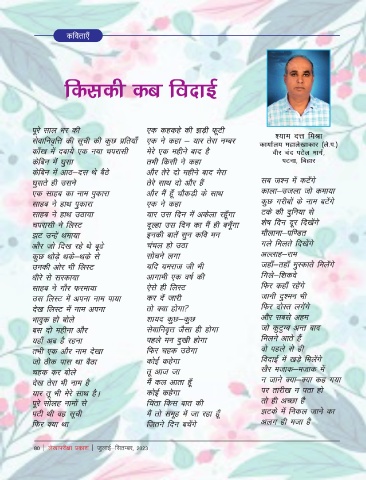 कविताएँ
किसकी कब विदाई
श्याम दत्त मिश्रा
कार्यालय महालेखाकार (ले.प.)
वीर चंद पटेल मार्ग,
पटना, बिहार
पूरे साल भर की
सेवानिवृत्ति की सूची की कुछ प्रतियाँ
काँख में दबाये एक नया चपरासी
केबिन में घुसा
केबिन में आठ–दस थे बैठे
घुसते ही उसने
एक साहब का नाम पुकारा
साहब ने हाथ पुकारा
साहब ने हाथ उठाया
चपरासी ने लिस्ट
झट उन्हें थमाया
और जो दिख रहे थे बूढ़े
कुछ थोड़े थके–थके से
उनकी ओर भी लिस्ट
धीरे से सरकाया
साहब ने गौर फरमाया
उस लिस्ट में अपना नाम पाया
देख लिस्ट में नाम अपना
भावुक हो बोले
बस दो महीना और
यहाँ अब है रहना
तभी एक और नाम देखा
जो ठीक पास था बैठा
चहक कर बोले
देख तेरा भी नाम है
यार तू भी मेरे साथ है।
पूरे सोलह नामों से
पटी थी वह सूची
फिर क्या था
एक कहकहे की झड़ी फूटी
एक ने कहा – यार तेरा नम्बर
मेरे एक महीने बाद है
तभी किसी ने कहा
और तेरे दो महीने बाद मेरा
तेरे साथ दो और हैं
और मैं हूँ चौकड़ी के साथ
एक ने कहा
यार उस दिन में अकेला रहूँगा
दूल्हा उस दिन का मैं ही बनूँगा
इनकी बातें सुन कवि मन
चंचल हो उठा
सोचने लगा
यदि यमराज जी भी
आगामी एक वर्ष की
ऐसे ही लिस्ट
कर दें जारी
तो क्या होगा?
शायद कुछ–कुछ
सेवानिवृत जैसा ही होगा
पहले मन दुखी होगा
फिर चहक उठेगा
कोई कहेगा
तू आज जा
मैं कल आता हूँ
कोई कहेगा
चिंता किस बात की
मैं तो समूह में जा रहा हूँ
जितने दिन बचेंगे
सब जश्न में कटेंगे
काला–उजला जो कमाया
कुछ गरीबों के नाम बटेंगे
टके की दुनिया से
शेष दिन दूर दिखेंगे
मौलाना–पण्डित
गले मिलते दिखेंगे
अल्लाह–राम
जहाँ–तहाँ मुस्काते मिलेंगे
गिले–शिकवे
फिर कहाँ रहेंगे
जानी दुश्मन भी
फिर दोस्त लगेंगे
और सबसे अहम
जो कुटुम्ब अन्त बाद
मिलने आते हैं
वो पहले से ही
विदाई में खड़े मिलेंगे
खैर मजाक–मजाक में
न जाने क्या–क्या कह गया
पर तारीख न पता हो
तो ही अच्छा है
झटके में निकल जाने का
अलग ही मजा है
60 | लेखापरीक्षा प्रकाश | जुलाई–सितम्बर, 2023